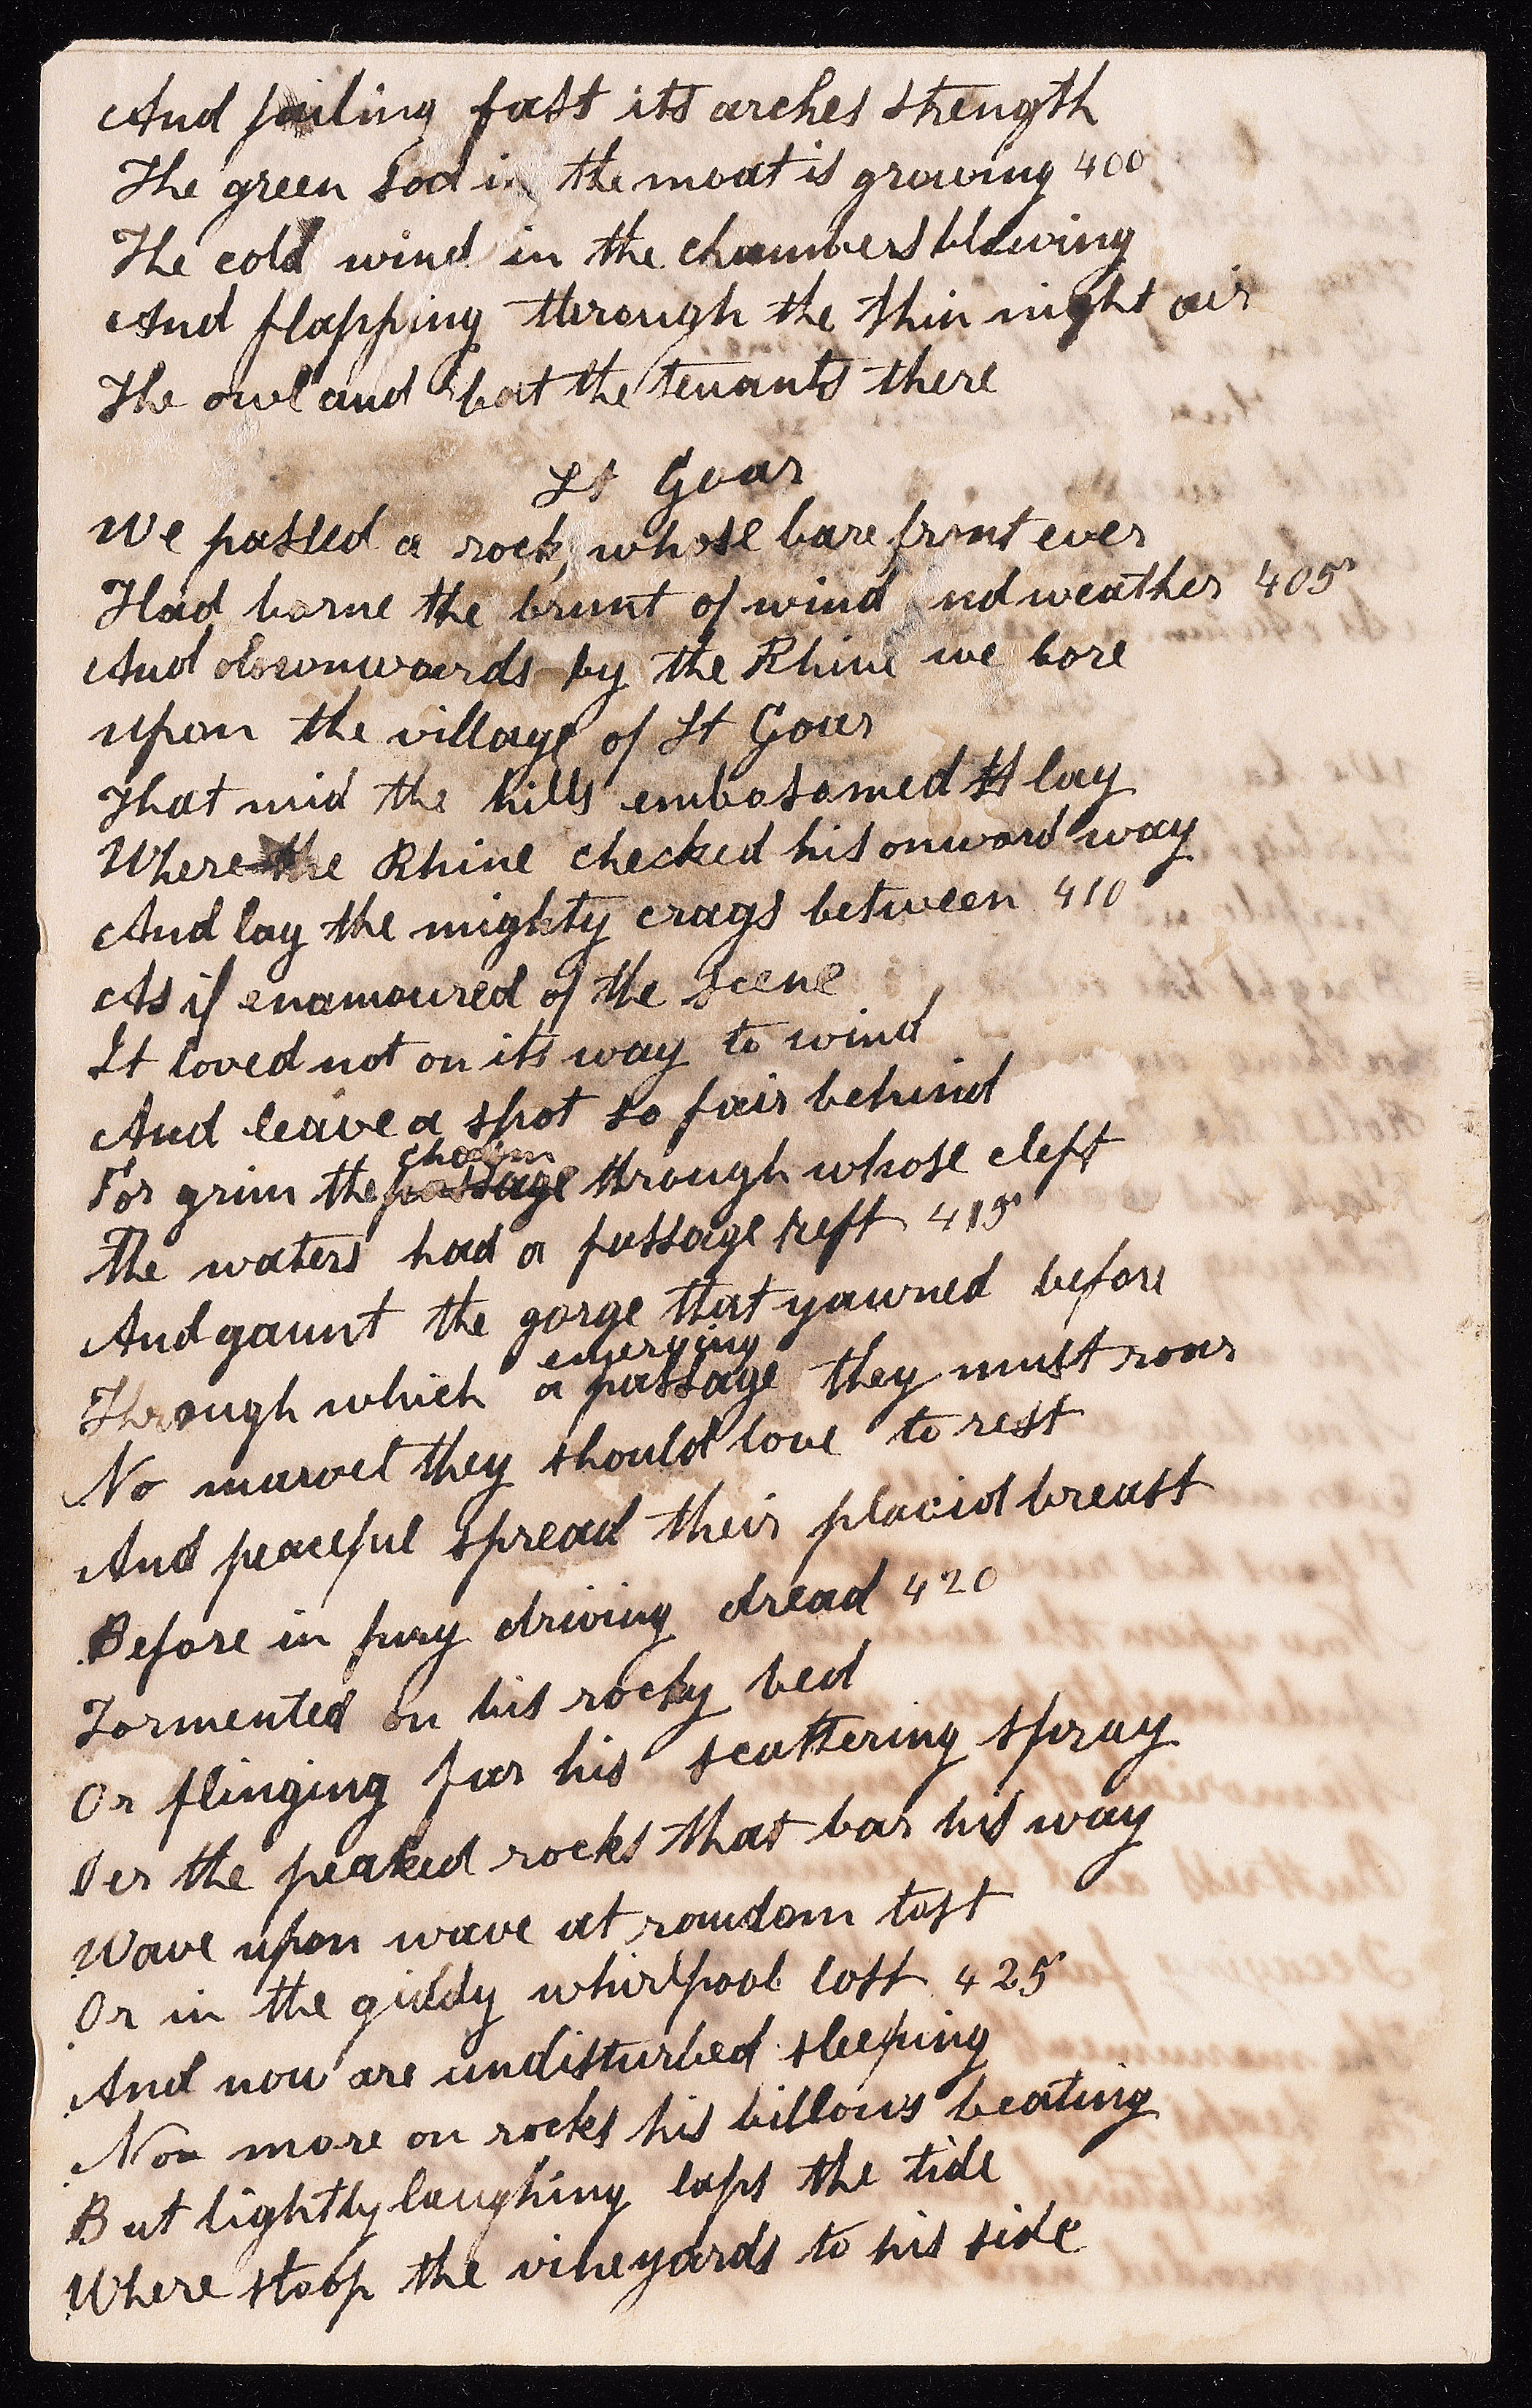 And failing fast its arches strength
The green sod in the moat is growing 400
The cold wind in the chambers blowing
And flapping through the thin night air
The owl and bat the tenants there
St Goar
We passed a rock, whose bare front ever
Had borne the brunt of wind and weather 405
And downwards by the Rhine we bore
upon the village of St Goar
That mid the hills embosomed lay
Where the Rhine checked his onward way
And lay the mighty crags between 410
As if enamoured of the scene
It loved not on its way to wind
And leave a spot so fair behind
chasm
For grim the passage through whose cleft
The waters had a passage reft 415
And gaunt the gorge that yawned before
emerging
Through which a passage they must roar
No marvel they should love to rest
And peaceful spread their placid breast
Before in fury driving dread 420
Tormented on his rocky bed
Or flinging far his scattering spray
Oer the peaked rocks that bar his way
Wave upon wave at random tost
Or in the giddy whirlpool lost 425
And now are undisturbed sleeping
No more on rocks his billows beating
But lightly laughing laps the tide
Where stoop the vineyards to his side